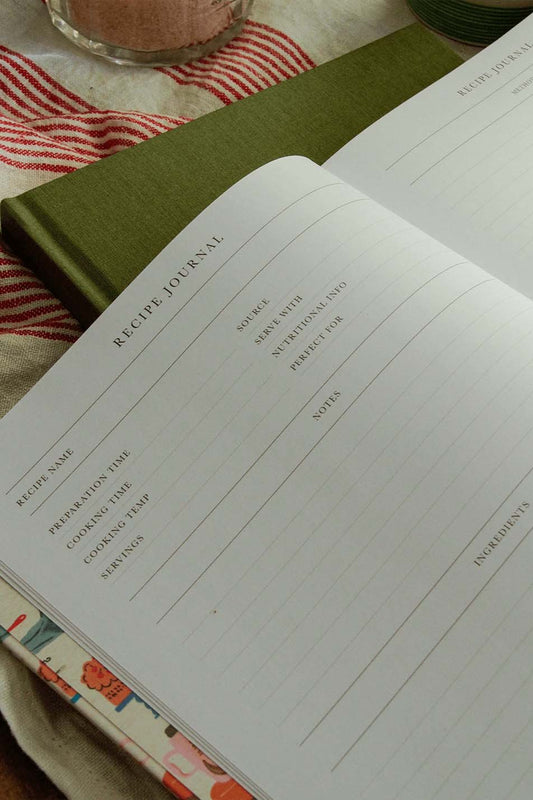 RECIPE JOURNAL
RECIPE NAME
PREPARATION TIME
COOKING TIME
COOKING TEMP
SERVINGS
SOURCE
SERVE WITH
NUTRITIONAL INFO
PERFECT FOR
NOTES
INGREDIENTS
RECIPE JOURNAL